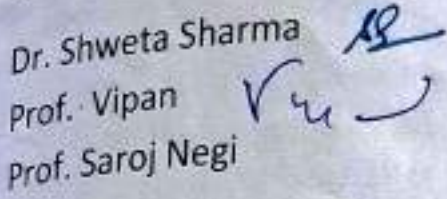 Dr. Shweta Sharma
Prof. Vipan
Prof. Saroj Negi